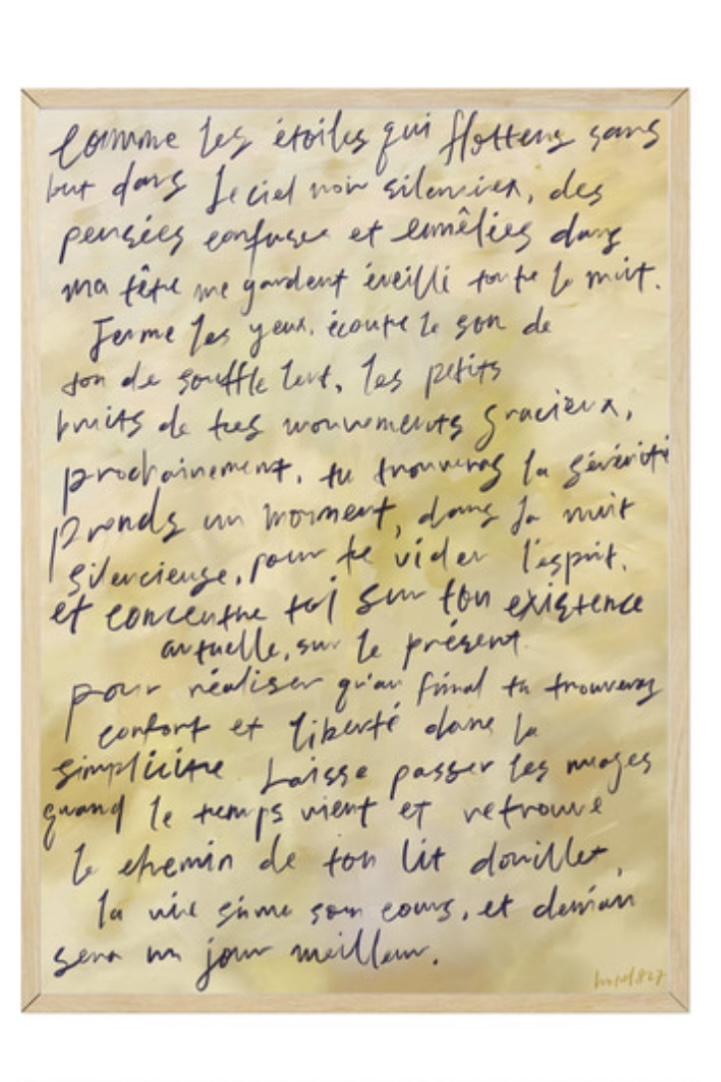 Comme les étoiles qui flottent sans
but dans le ciel noir silencieux, des
pensées confuses et emmêlées dans
ma tête me gardent éveillé toute la nuit.
Ferme les yeux, écoute le son de
ton de souffle lent, les petits
bruits de tes mouvements gracieux,
prochainement, tu trouveras la sévérité
prends un moment, dans la nuit
silencieuse, pour te vider l'esprit.
et concentre toi sur ton existence
actuelle, sur le présent
pour réaliser qu'au final tu trouveras
confort et liberté dans la
simplicité Laisse passer les nuages
quand le temps vient et retrouve
le chemin de ton lit douillet,
la vie suive son cours, et demain
sera un jour meilleur.